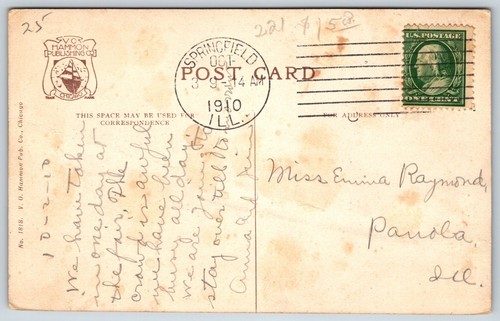 25
221 $15.00
V.O.
HAMMON
PUBLISHING CO.
CHICAGO
SPRINGFIELD
OCT
3 9-AM
1910
ILL.
U.S. POSTAGE
ONE CENT
POST CARD
THIS SPACE MAY BE USED FOR
CORRESPONDENCE
FOR ADDRESS ONLY
No. 1818. V. O. Hammon Pub. Co., Chicago
10-2-10
We have taken
in one day at
the fair. The
crowd is awful
we have been
busy all day
we are going to
stay over all
Anna
Miss Emma Raymond,
Panola,
Ill.